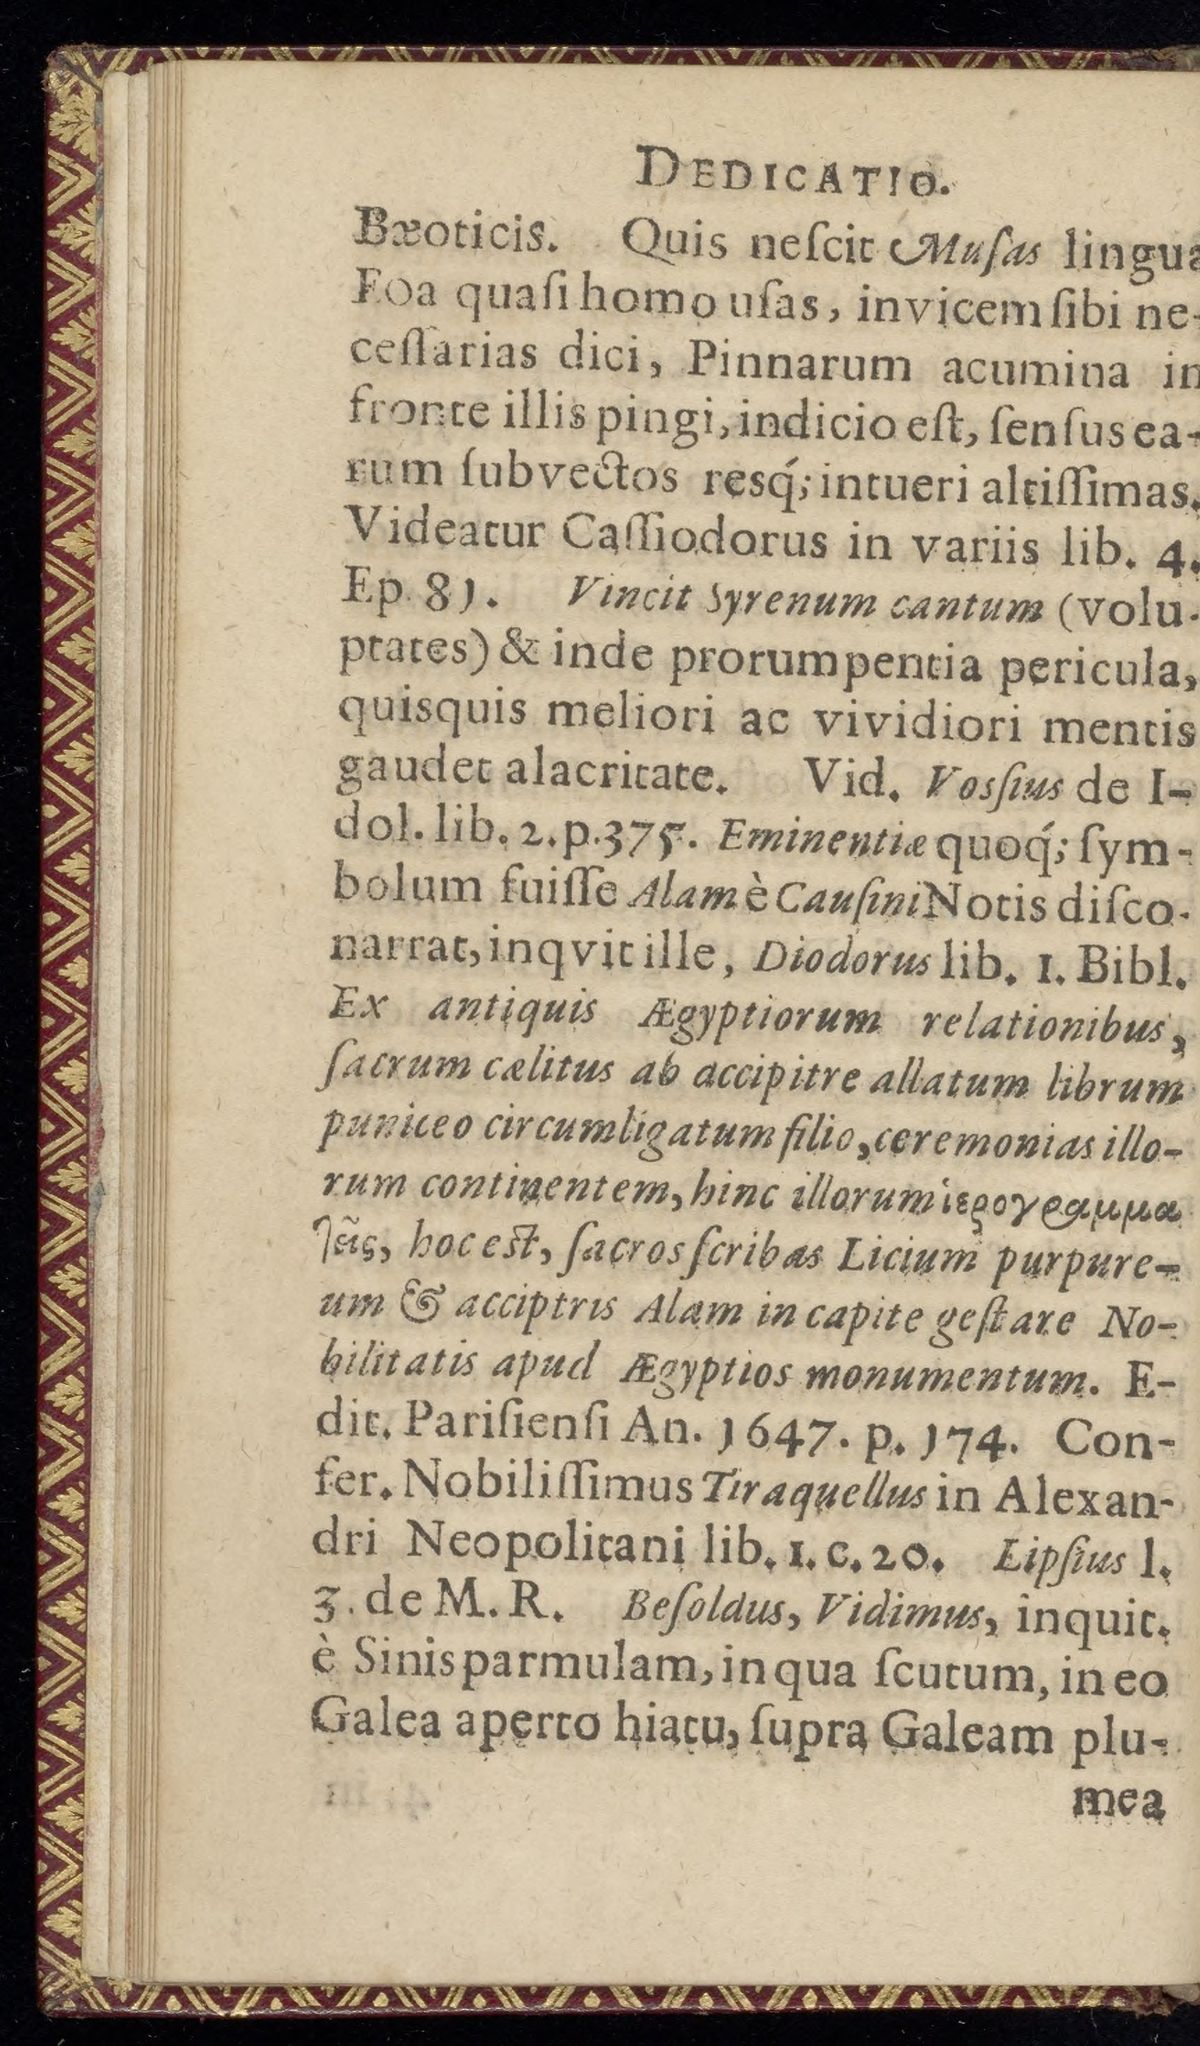 DEDICATIO.
Bæoticis. Quis neſcit Muſas lingua
Eoa quaſi homo uſas, invicem ſibi ne-
ceſſarias dici, Pinnarum acumina in
fronte illis pingi, indicio eſt, ſenſus ea-
rum ſubvectos resq́; intueri altiſſimas.
Videatur Caſſiodorus in variis lib. 4.
Ep. 81. Vincit Syrenum cantum (volu-
ptates) & inde prorumpentia pericula,
quisquis meliori ac vividiori mentis
gaudet alacritate. Vid. Vosſius de I-
dol. lib. 2. p. 375. Eminentiæ quoq́; ſym-
bolum fuiſſe Alam è Cauſini Notis diſco.
narrat, inqvit ille, Diodorus lib. 1. Bibl.
Ex antiquis Ægyptiorum relationibus,
ſacrum cælitus ab accipitre allatum librum
puniceo circumligatum filio, ceremonias illo-
rum continentem, hinc illorum ἱερογραμμα
τεῖς, hoc eſt, ſacros ſcribas Licium purpure-
um & acciptris Alam in capite geſtare No-
bilitatis apud Ægyptios monumentum. E-
dit. Pariſienſi An. 1647. p. 174. Con-
fer. Nobiliſſimus Tiraquellus in Alexan-
dri Neopolitani lib. 1. c. 20. Lipſius l.
3. de M. R. Beſoldus, Vidimus, inquit.
è Sinis parmulam, in qua ſcutum, in eo
Galea aperto hiatu, ſupra Galeam plu-
mea